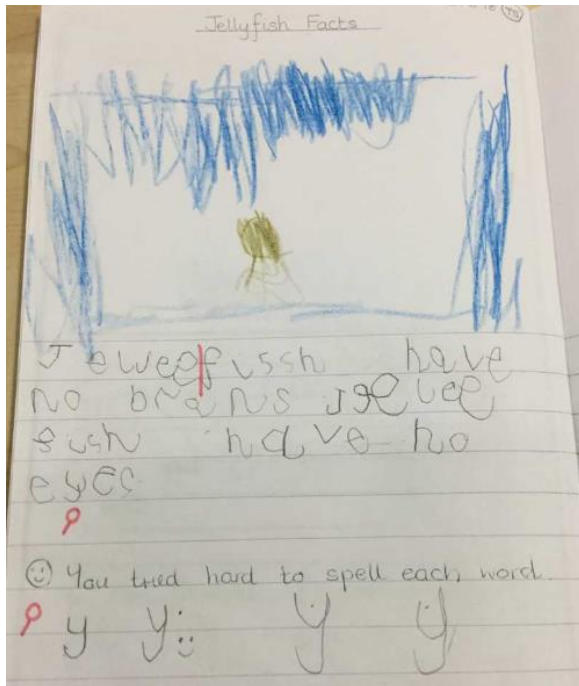 Jellyfish Facts
Jeweefissh have
no brans
fish have no
eyes
☺ You tried hard to spell each word.
y y y y